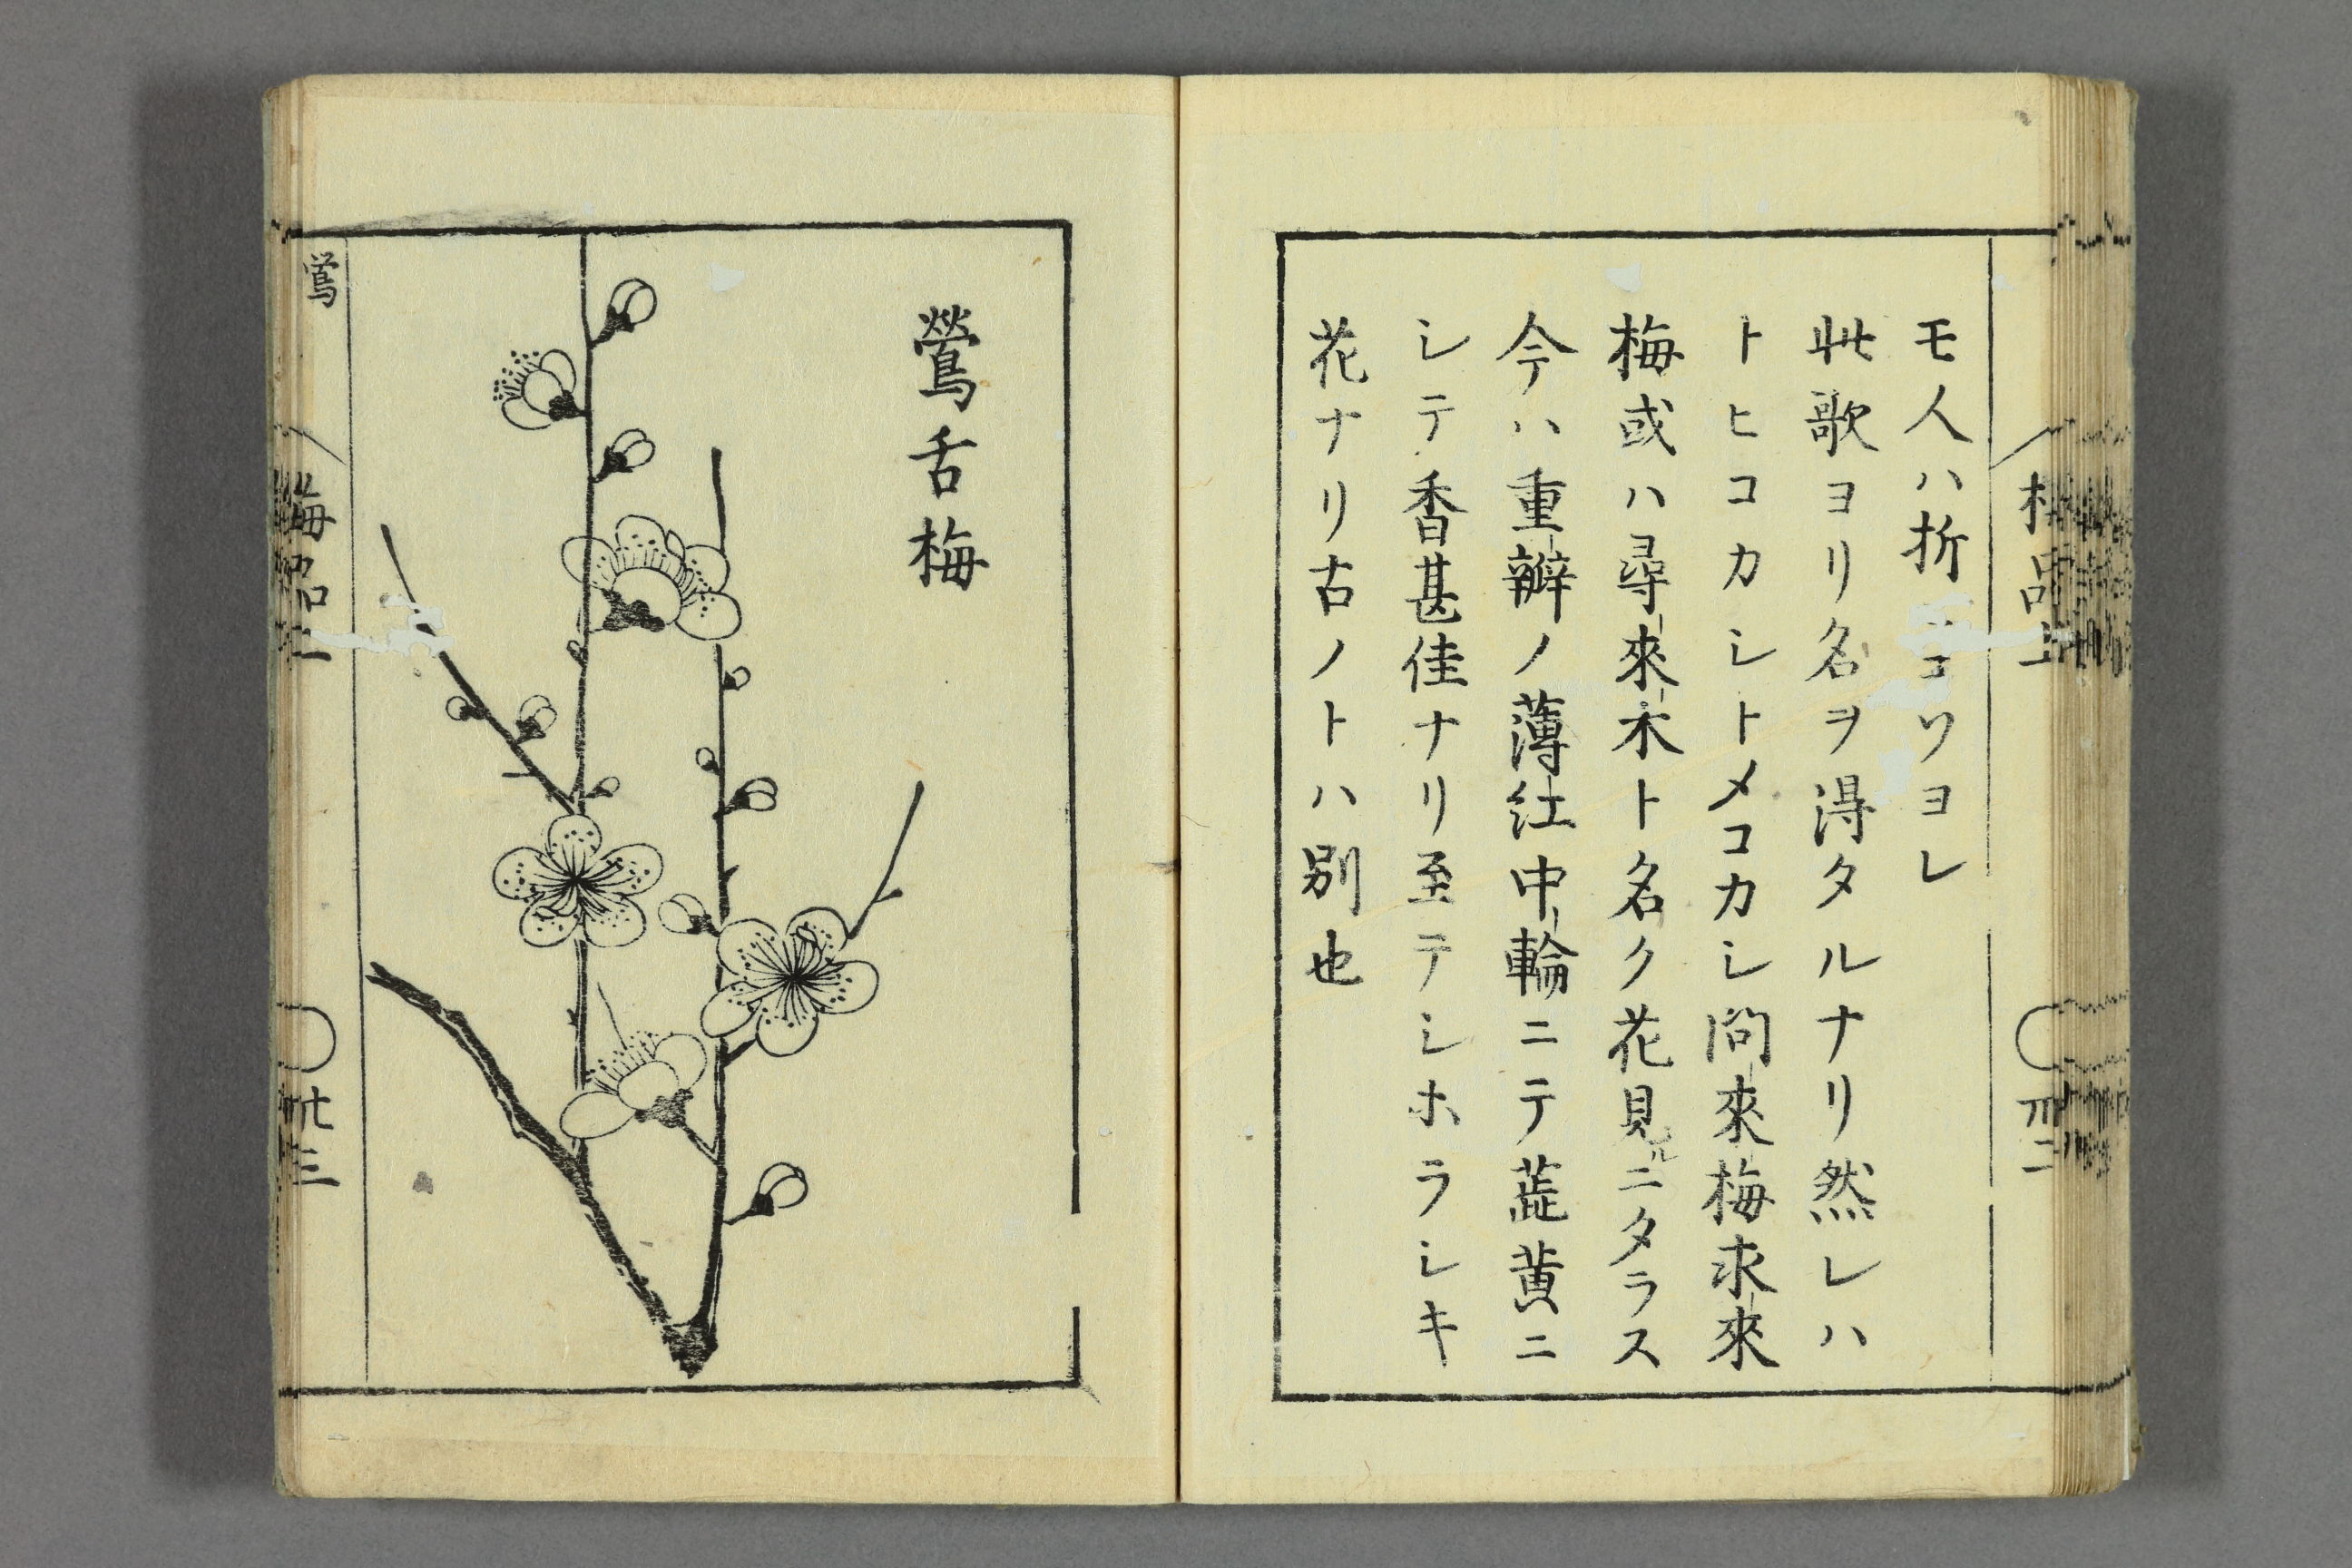 モ人ハ折コソヨレ
此歌ヨリ名ヲ得タルナリ然レハ
トヒコカシトメコカシ問來梅求來
梅或ハ尋來木ト名ク花見ルニタラス
今ハ重瓣ノ薄紅中輪ニテ蘂黄ニ
シテ香甚佳ナリ至テシホラシキ
花ナリ古ノトハ別也
鶯舌梅
鶯
梅品上
卅三